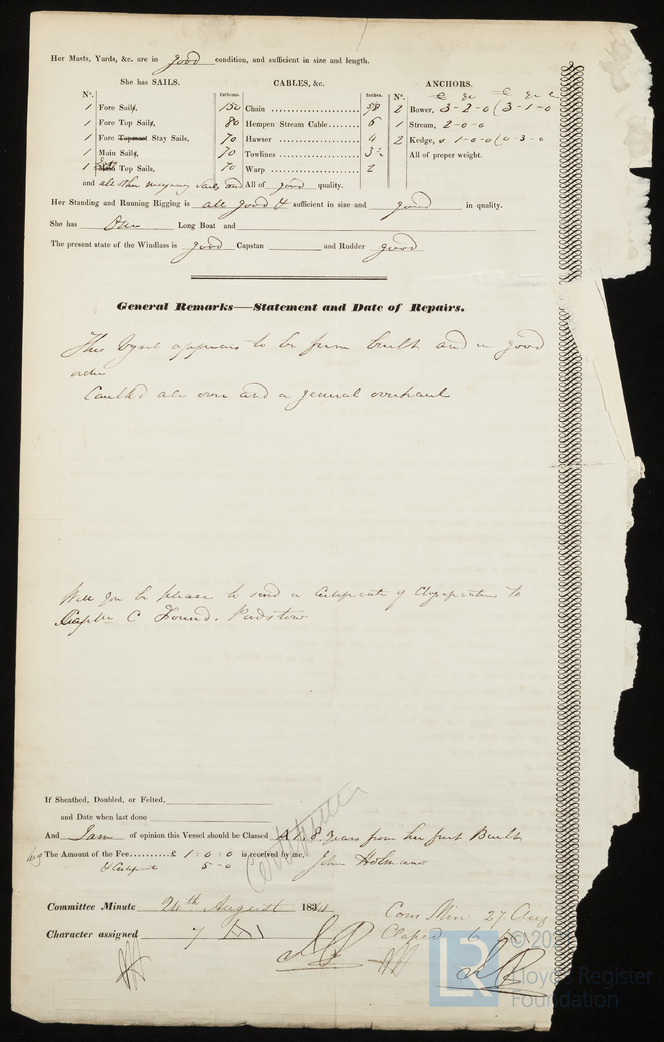 Her Masts, Yards, &c. are in good condition, and sufficient in size and length.
She has SAILS. CABLES, &c. ANCHORS.
N°. Fathoms. Inches. N°.
1 Fore Sails, 150 Chain 2 Bower, 3-2-0 (3-1-0
1 Fore Top Sails, 80 Hempen Stream Cable 6 1 Stream, 2-0-0
1 Fore Topmast Stay Sails, 70 Hawser 4 2 Kedge, 1-0-0 (0-3-0
1 Main Sails, 70 Towlines 3½ All of proper weight.
1 Top Sails, 70 Warp 2
and all other necessary Sails and All of good quality.
Her Standing and Running Rigging is all good & sufficient in size and good in quality.
She has One Long Boat and
The present state of the Windlass is good Capstan and Rudder good
General Remarks—Statement and Date of Repairs.
This Vessel appears to be firm built and in good
order
Caulk'd all over and a general overhaul
Will you be please to send a Certificate of Classification to
C Found. Padstow
If Sheathed, Doubled, or Felted,
and Date when last done
And I am of opinion this Vessel should be Classed A 1. 8 Years from her first Built
The Amount of the Fee £ 1 : 0 : 0 is received by me,
John Holman
5 - 0
Certificate
Committee Minute 24th August 1834
Com Min 27 Aug
Character assigned 7 A1
Classed 6 A1
LR
© 20
Lloyd's Register
Foundation